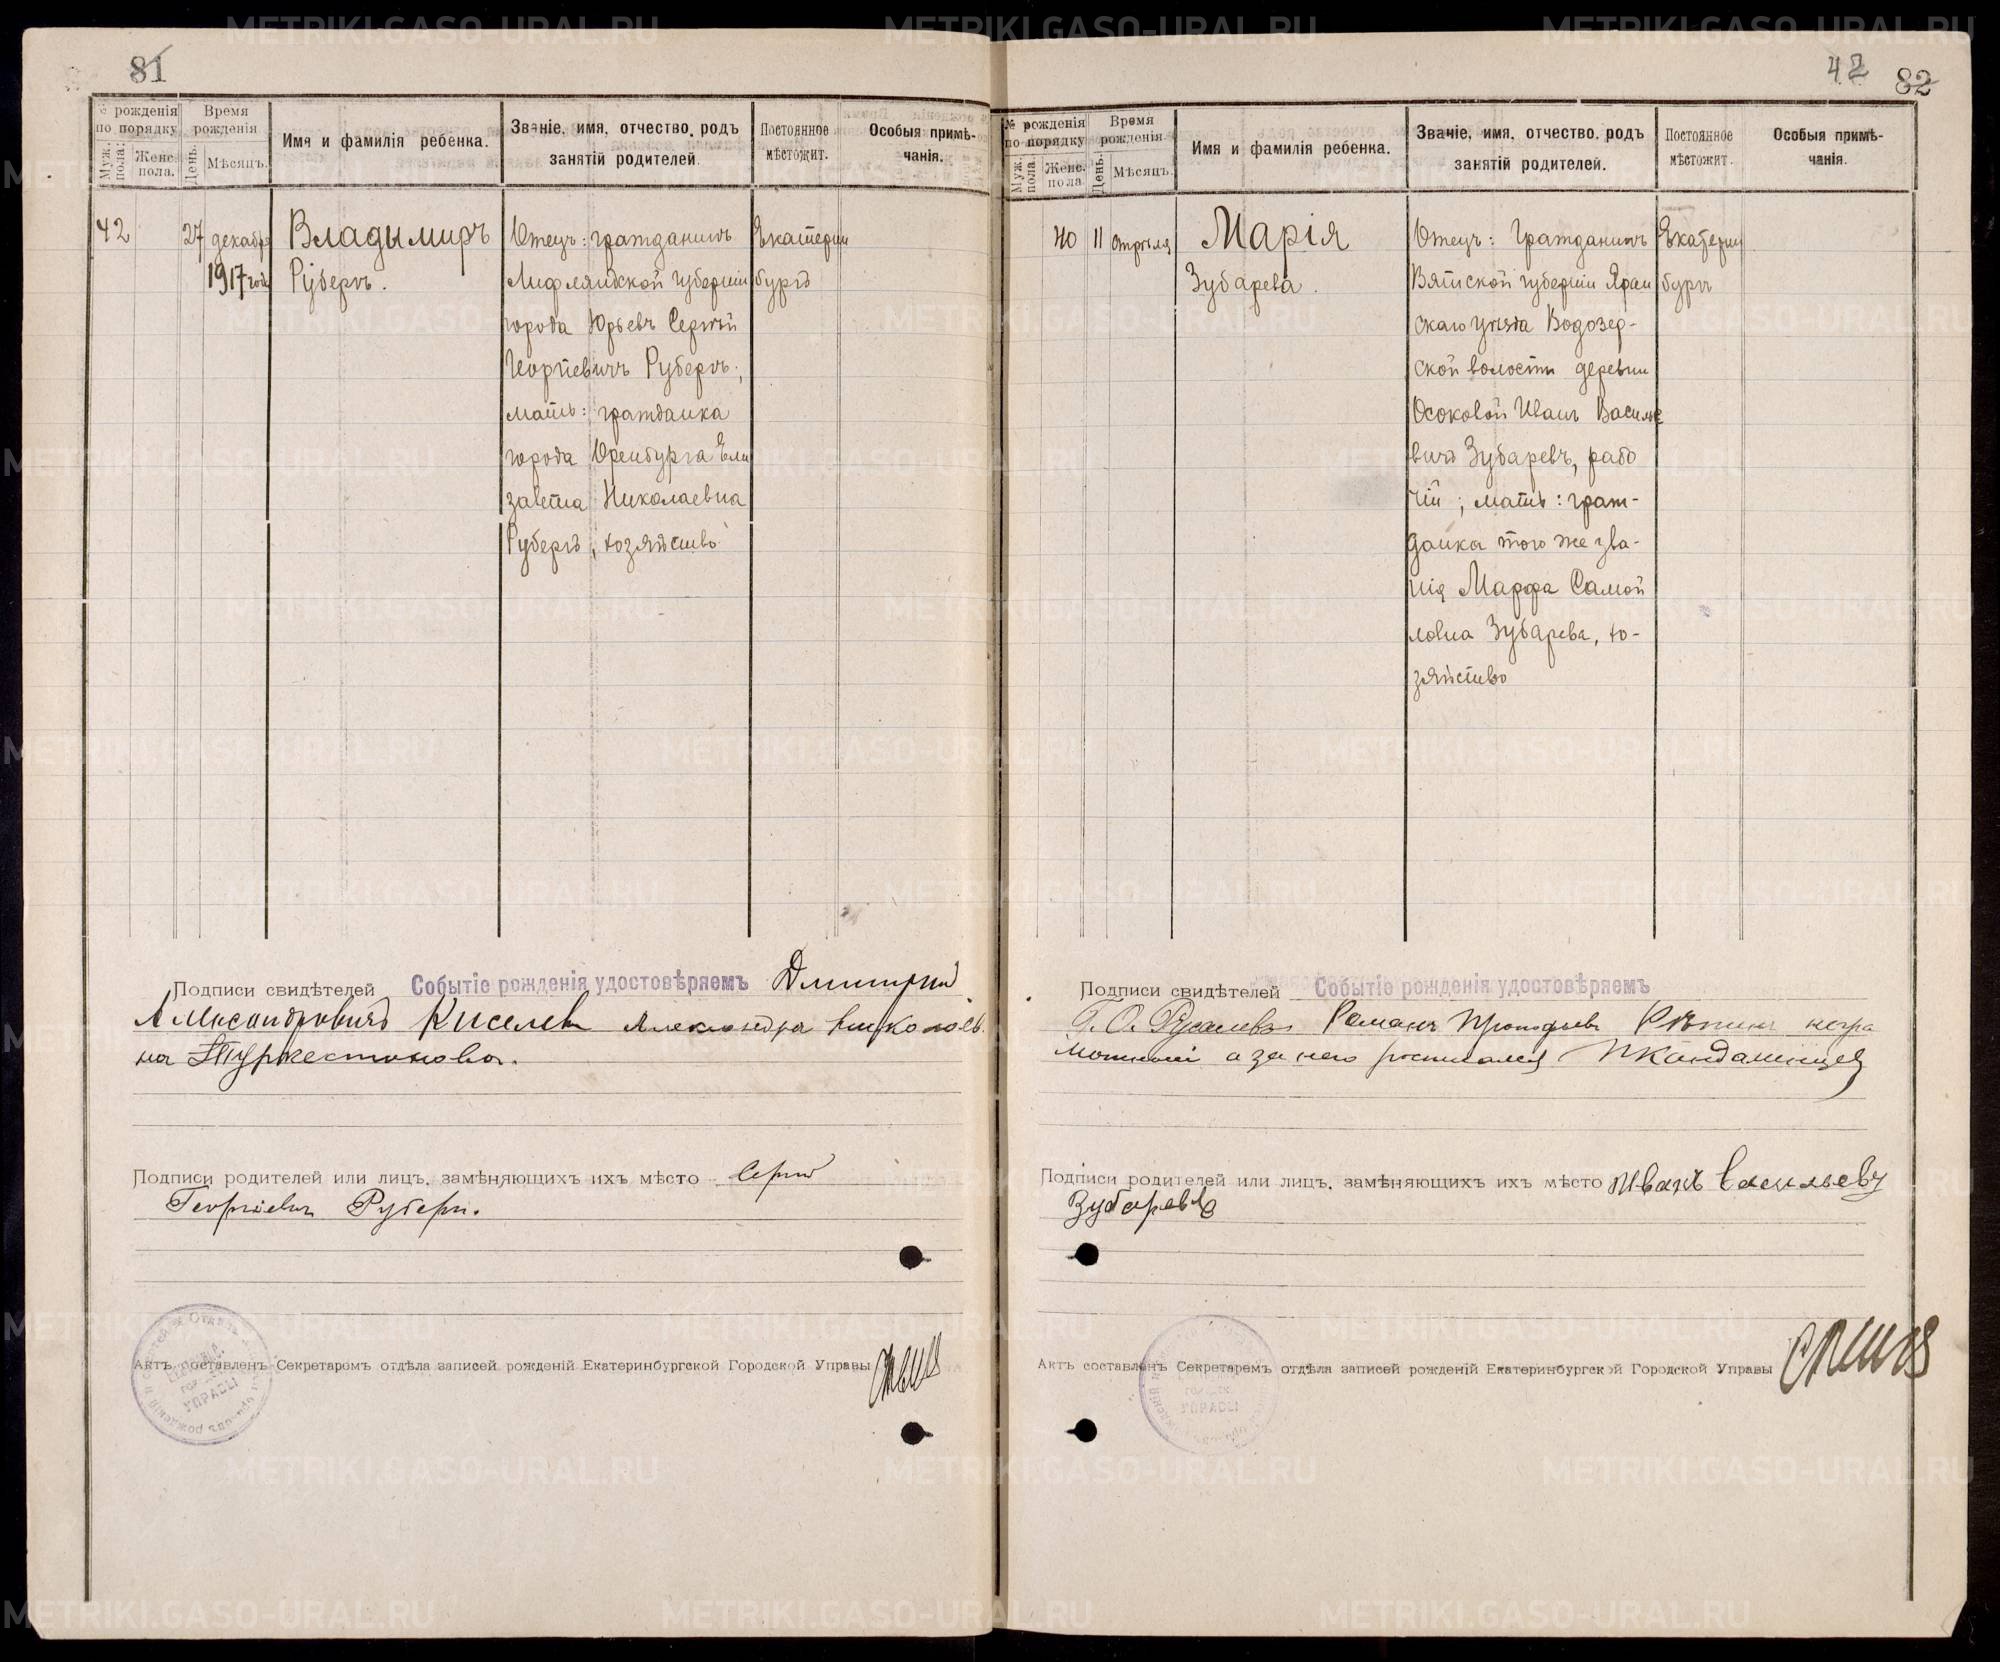 81
№ рожденія по порядку
Муж. пола.
Женс. пола.
Время рожденія
День.
Мѣсяцъ.
Имя и фамилія ребенка.
Званіе, имя, отчество, родъ
занятій родителей.
Постоянное
мѣстожит.
Особыя примѣ-
чанія.
42
27 декабря
1917 года
Владымиръ
Рубергъ.
Отецъ: гражданинъ
Лифляндской губерніи
города Юрьевъ Сергѣй
Георгіевичъ Рубергъ;
мать: гражданка
города Оренбурга Ели
завета Николаевна
Рубергъ, хозяйство
Екатерин
бургъ
Подписи свидѣтелей Событіе рожденія удостовѣряемъ Дмитрий
Александровичъ Киселев Александра Николаев
на Туркестанова.
Подписи родителей или лицъ, замѣняющихъ ихъ мѣсто Сергѣй
Георгіевич Руберг.
Актъ составленъ Секретаремъ отдѣла записей рожденій Екатеринбургской Городской Управы
42 82
№ рожденія по порядку
Муж. пола
Женс. пола
Время рожденія
День.
Мѣсяцъ.
Имя и фамилія ребенка.
Званіе, имя, отчество, родъ
занятій родителей.
Постоянное
мѣстожит.
Особыя примѣ-
чанія.
40 11 апрѣля
Марія
Зубарева.
Отецъ: Гражданинъ
Вятской губерніи Яран
скаго уѣзда Водозер-
ской волости деревни
Осоковой Иванъ Василье
вичъ Зубаревъ, рабо
чій; мать: граж-
данка того же зва-
нія Марфа Самой
ловна Зубарева, хо-
зяйство
Екатерин
бургъ
Подписи свидѣтелей Событіе рожденія удостовѣряемъ
Романъ Прокофьев негра
мотный а за него росписался
Подписи родителей или лицъ, замѣняющихъ ихъ мѣсто Иванъ Васильеву
Зубаревъ
Актъ составленъ Секретаремъ отдѣла записей рожденій Екатеринбургской Городской Управы
УПРАВЫ
METRIKI.GASO-URAL.RU